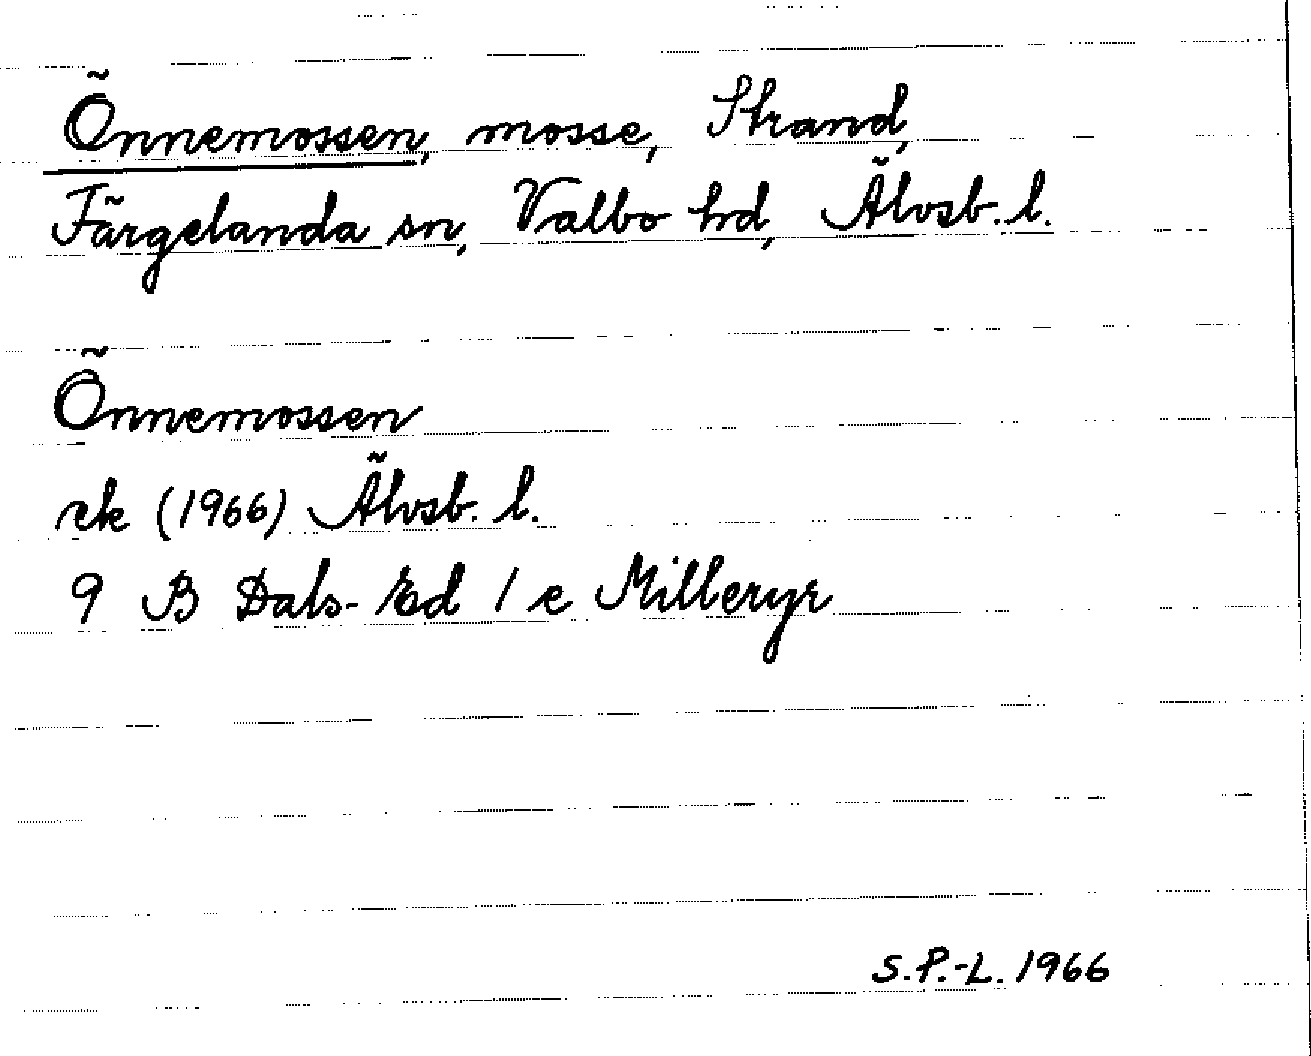 Önnemossen, mosse, Strand,
Färgelanda sn, Valbo hd, Älvsb. l.
Önnemossen
ek (1966) Älvsb. l.
9 B Dals-Ed 1 e Milleryr
S.P.-L. 1966